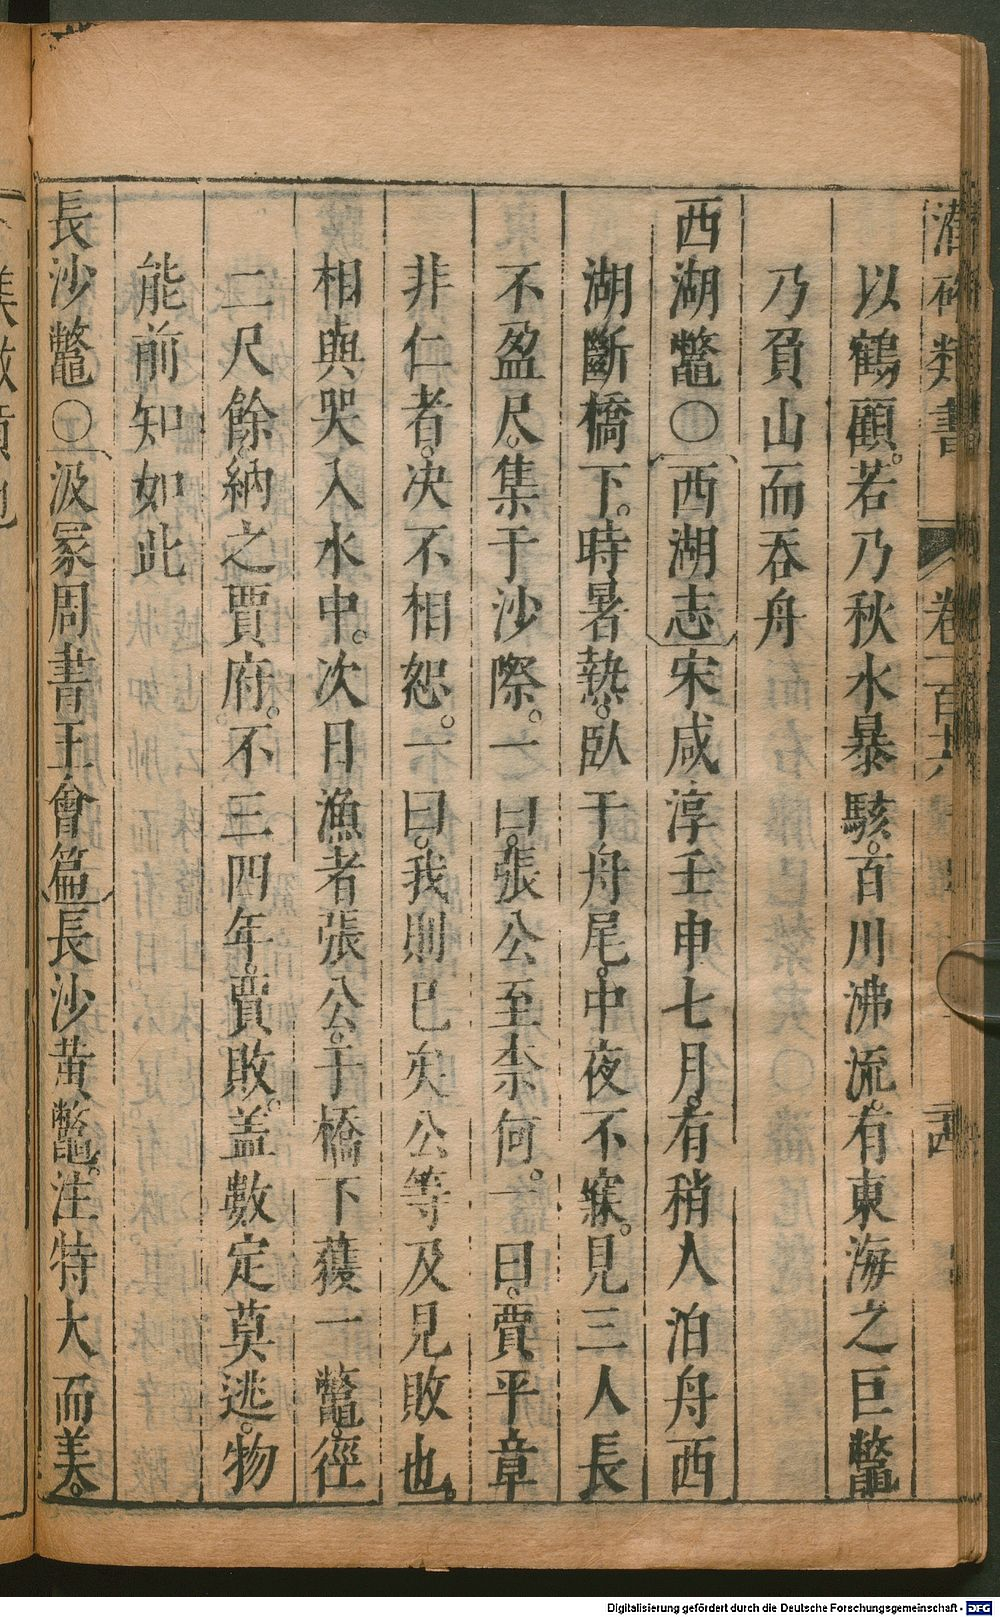 潛確類書 卷一百十六
以鶴顧。若乃秋水暴駭。百川沸流。有東海之巨鼈
乃負山而吞舟
西湖鼈〇西湖志宋咸淳壬申七月。有稍人泊舟西
湖斷橋下。時暑熱。臥于舟尾。中夜不寐。見三人長
不盈尺。集于沙際。一曰。張公至柰何。一曰。賈平章
非仁者。决不相恕。一曰。我則已矣公等及見敗也。
相與哭入水中。次日漁者張公。于橋下獲一鼈。徑
二尺餘。納之賈府。不三四年。賈敗。盖數定莫逃。物
能前知如此
長沙鼈〇汲冢周書王會篇長沙黄鼈。注特大而美。
Digitalisierung gefördert durch die Deutsche Forschungsgemeinschaft - DFG